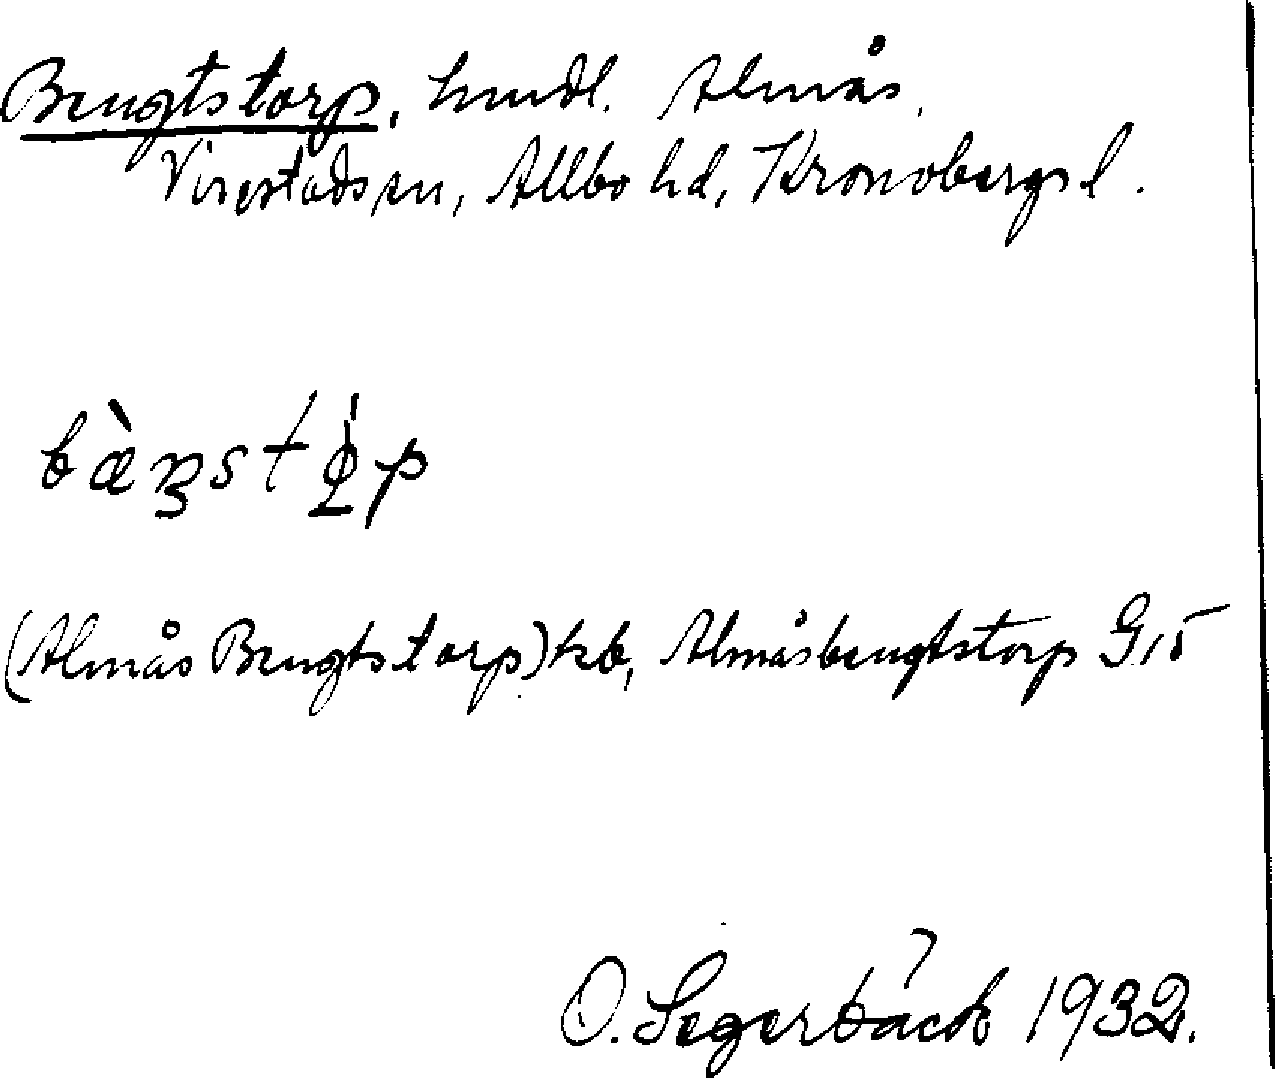 Bengtstorp, hmdl. Almås,
Virestads sn, Allbo hd, Kronobergs l.
(Almås Bengtstorp) kb, Almåsbengtstorp G15
O. Segerbäck 1932.